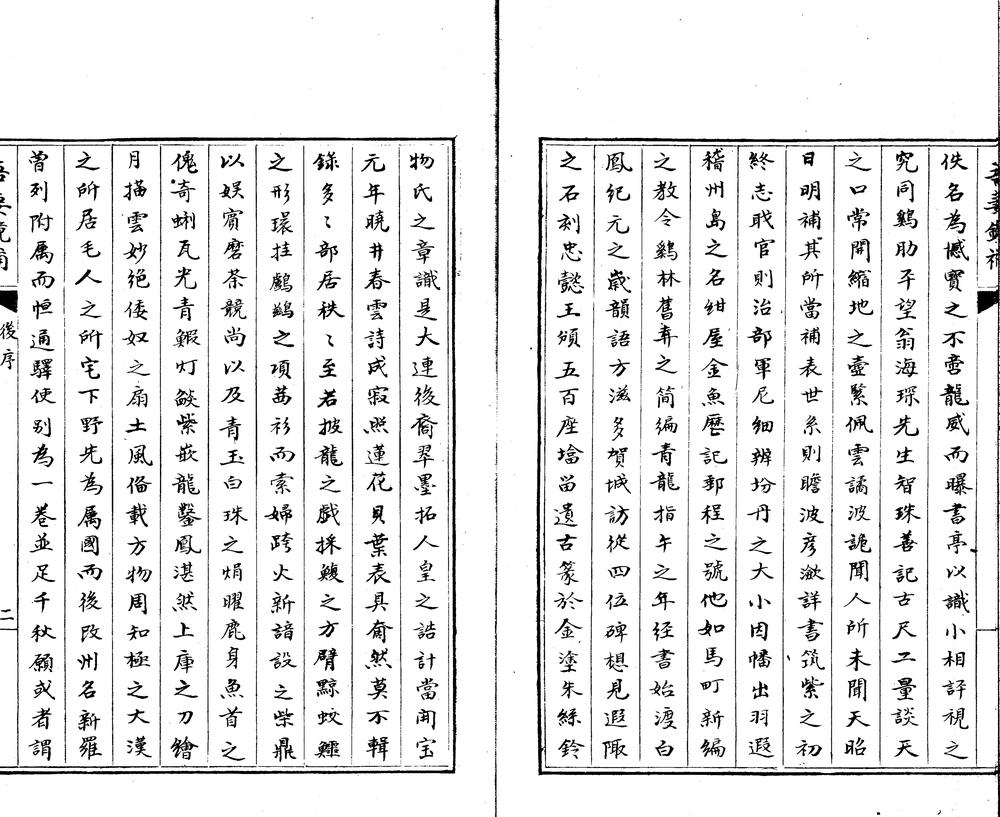 佚名為憾寶之不啻龍威而曝書亭以識小相評視之
究同鷄肋平望翁海琛先生智珠善記古尺工量談天
之口常開縮地之壺繫佩雲譎波詭聞人所未聞天昭
日明補其所當補表世系則瞻波彦瀲詳書筑紫之初
終志職官則治部軍尼細辨坋丹之大小因幡出羽遐
稽州島之名紺屋金魚歷記郵程之號他如馬町新編
之教令鷄林舊弆之简編青龍指午之年經書始渡白
鳳紀元之歲韻語方滋多賀城訪從四位碑想見遐陬
之石刻忠懿王頒五百座墖畱遺古篆於金塗朱絲鈴
物氏之章識是大連後裔翠墨拓人皇之誥計當開宝
元年曉井春雲詩成寂照蓮花貝葉表具奝然莫不輯
錄多〻部居秩〻至若披龍之戲採鰒之方臂黥蚊鱷
之形環挂鸕鷀之項茜衫而索婦跨火新諳設之柴鼎
以娱賓磨茶競尚以及青玉白珠之焆曜鹿身魚首之
傀奇蜊瓦光青鰕灯燄紫嵌龍鑿鳳湛然上庫之刀繪
月描雲妙絕倭奴之扇土風偹載方物周知極之大漢
之所居毛人之所宅下野先為屬國而後改州名新羅
曾列附屬而恒通驛使别為一卷並足千秋願或者謂
後序
二